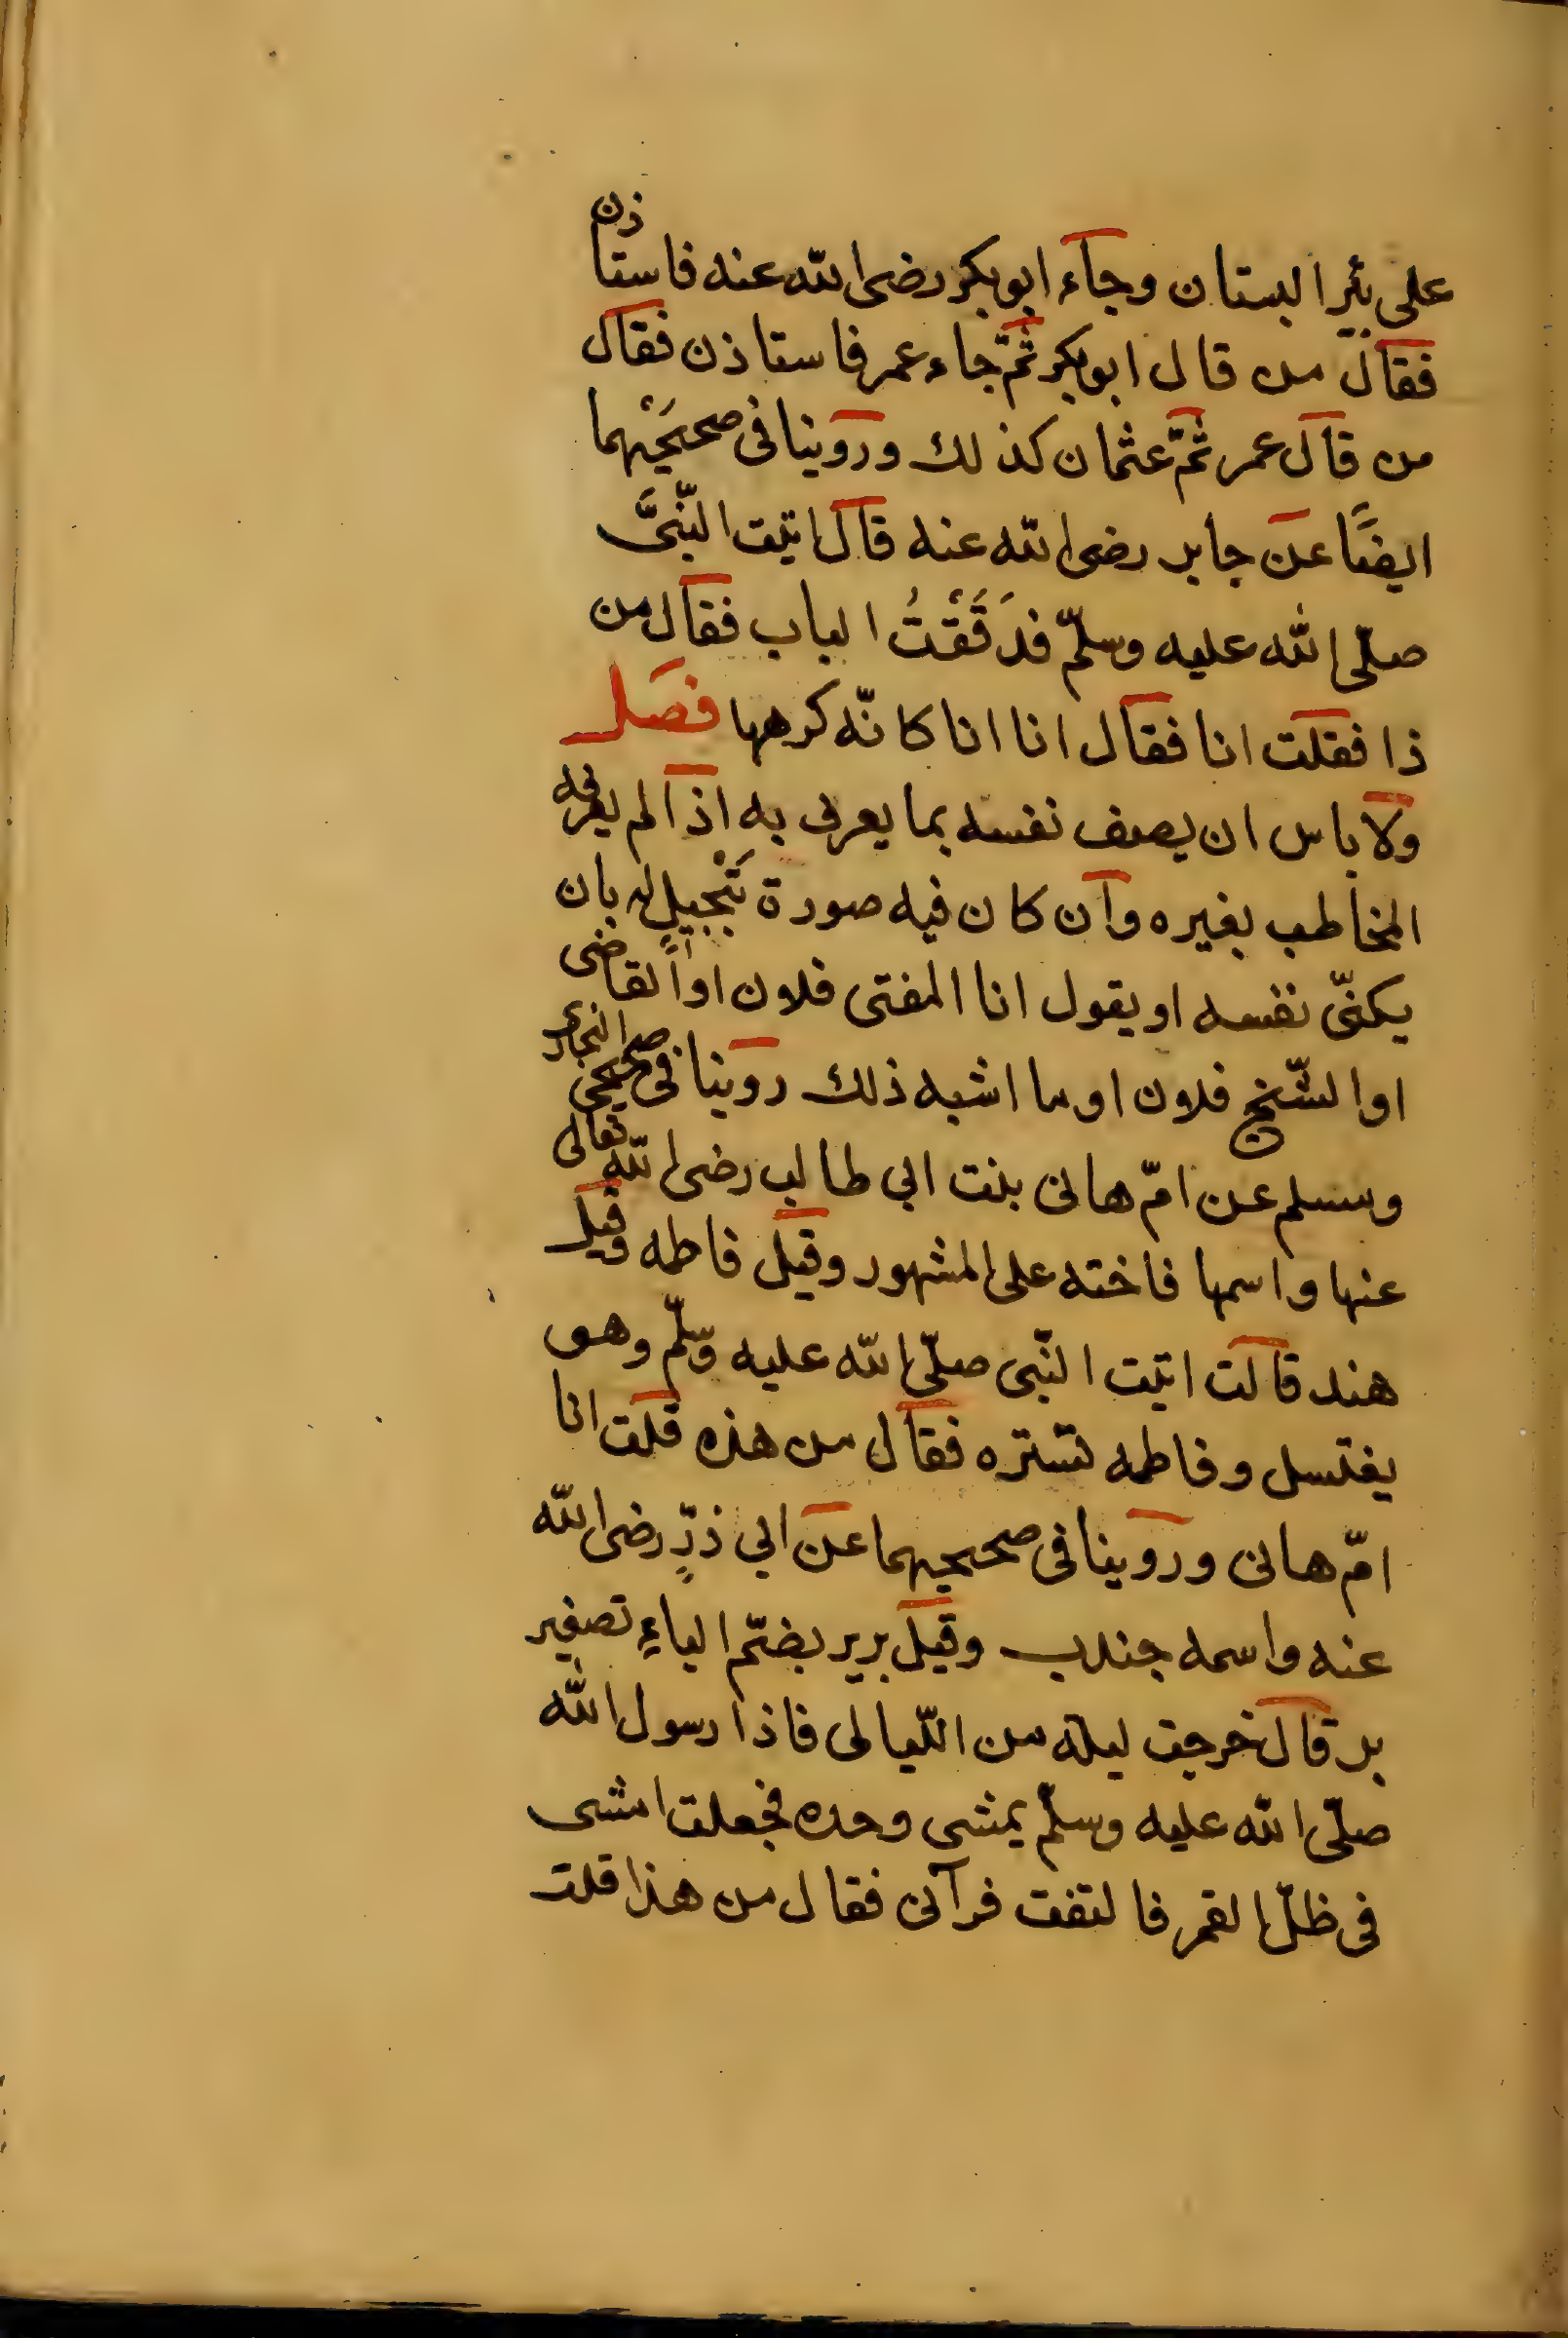 على بئر البستان وجآء ابو بكر رضى الله عنه فاستاذن
فقال من قال ابو بكر ثمّ جاء عمر فاستاذن فقال
من قال عمر ثمّ عثمان كذلك وروينا فى صحيحَيْهما
ايضًا عن جابر رضى الله عنه قال اتيت النّبىَّ
صلّى الله عليه وسلّم فدَقَقْتُ الباب فقال من
ذا فقلت انا فقال انا انا كانّه كرهها فصل
ولا باس ان يصف نفسه بما يعرف به اذا لم يعرفه
المخاطب بغيره وان كان فيه صورة تَبْجيلٍ له بان
يكنّى نفسه او يقول انا المفتى فلان او القاضى
او الشّيخ فلان او ما اشبه ذلك روينا فى صحيحى البخارى
ومسلم عن امّ هانى بنت ابى طالب رضى الله تعالى
عنها واسمها فاخته على المشهور وقيل فاطمه وقيل
هند قالت اتيت النّبى صلّى الله عليه وسّلّم وهو
يغتسل وفاطمه تستره فقال من هذه قلت انا
امّ هانى وروينا فى صحيحيهما عن ابى ذرٍّ رضى الله
عنه واسمه جندب وقيل برير بضمّ الباءِ تصغير
بر قال خرجت ليلة من اللّيالى فاذا رسول الله
صلّى الله عليه وسلّم يمشى وحده فجعلت امشى
فى ظلّ القمر فالتفت فرآنى فقال من هذا قلت